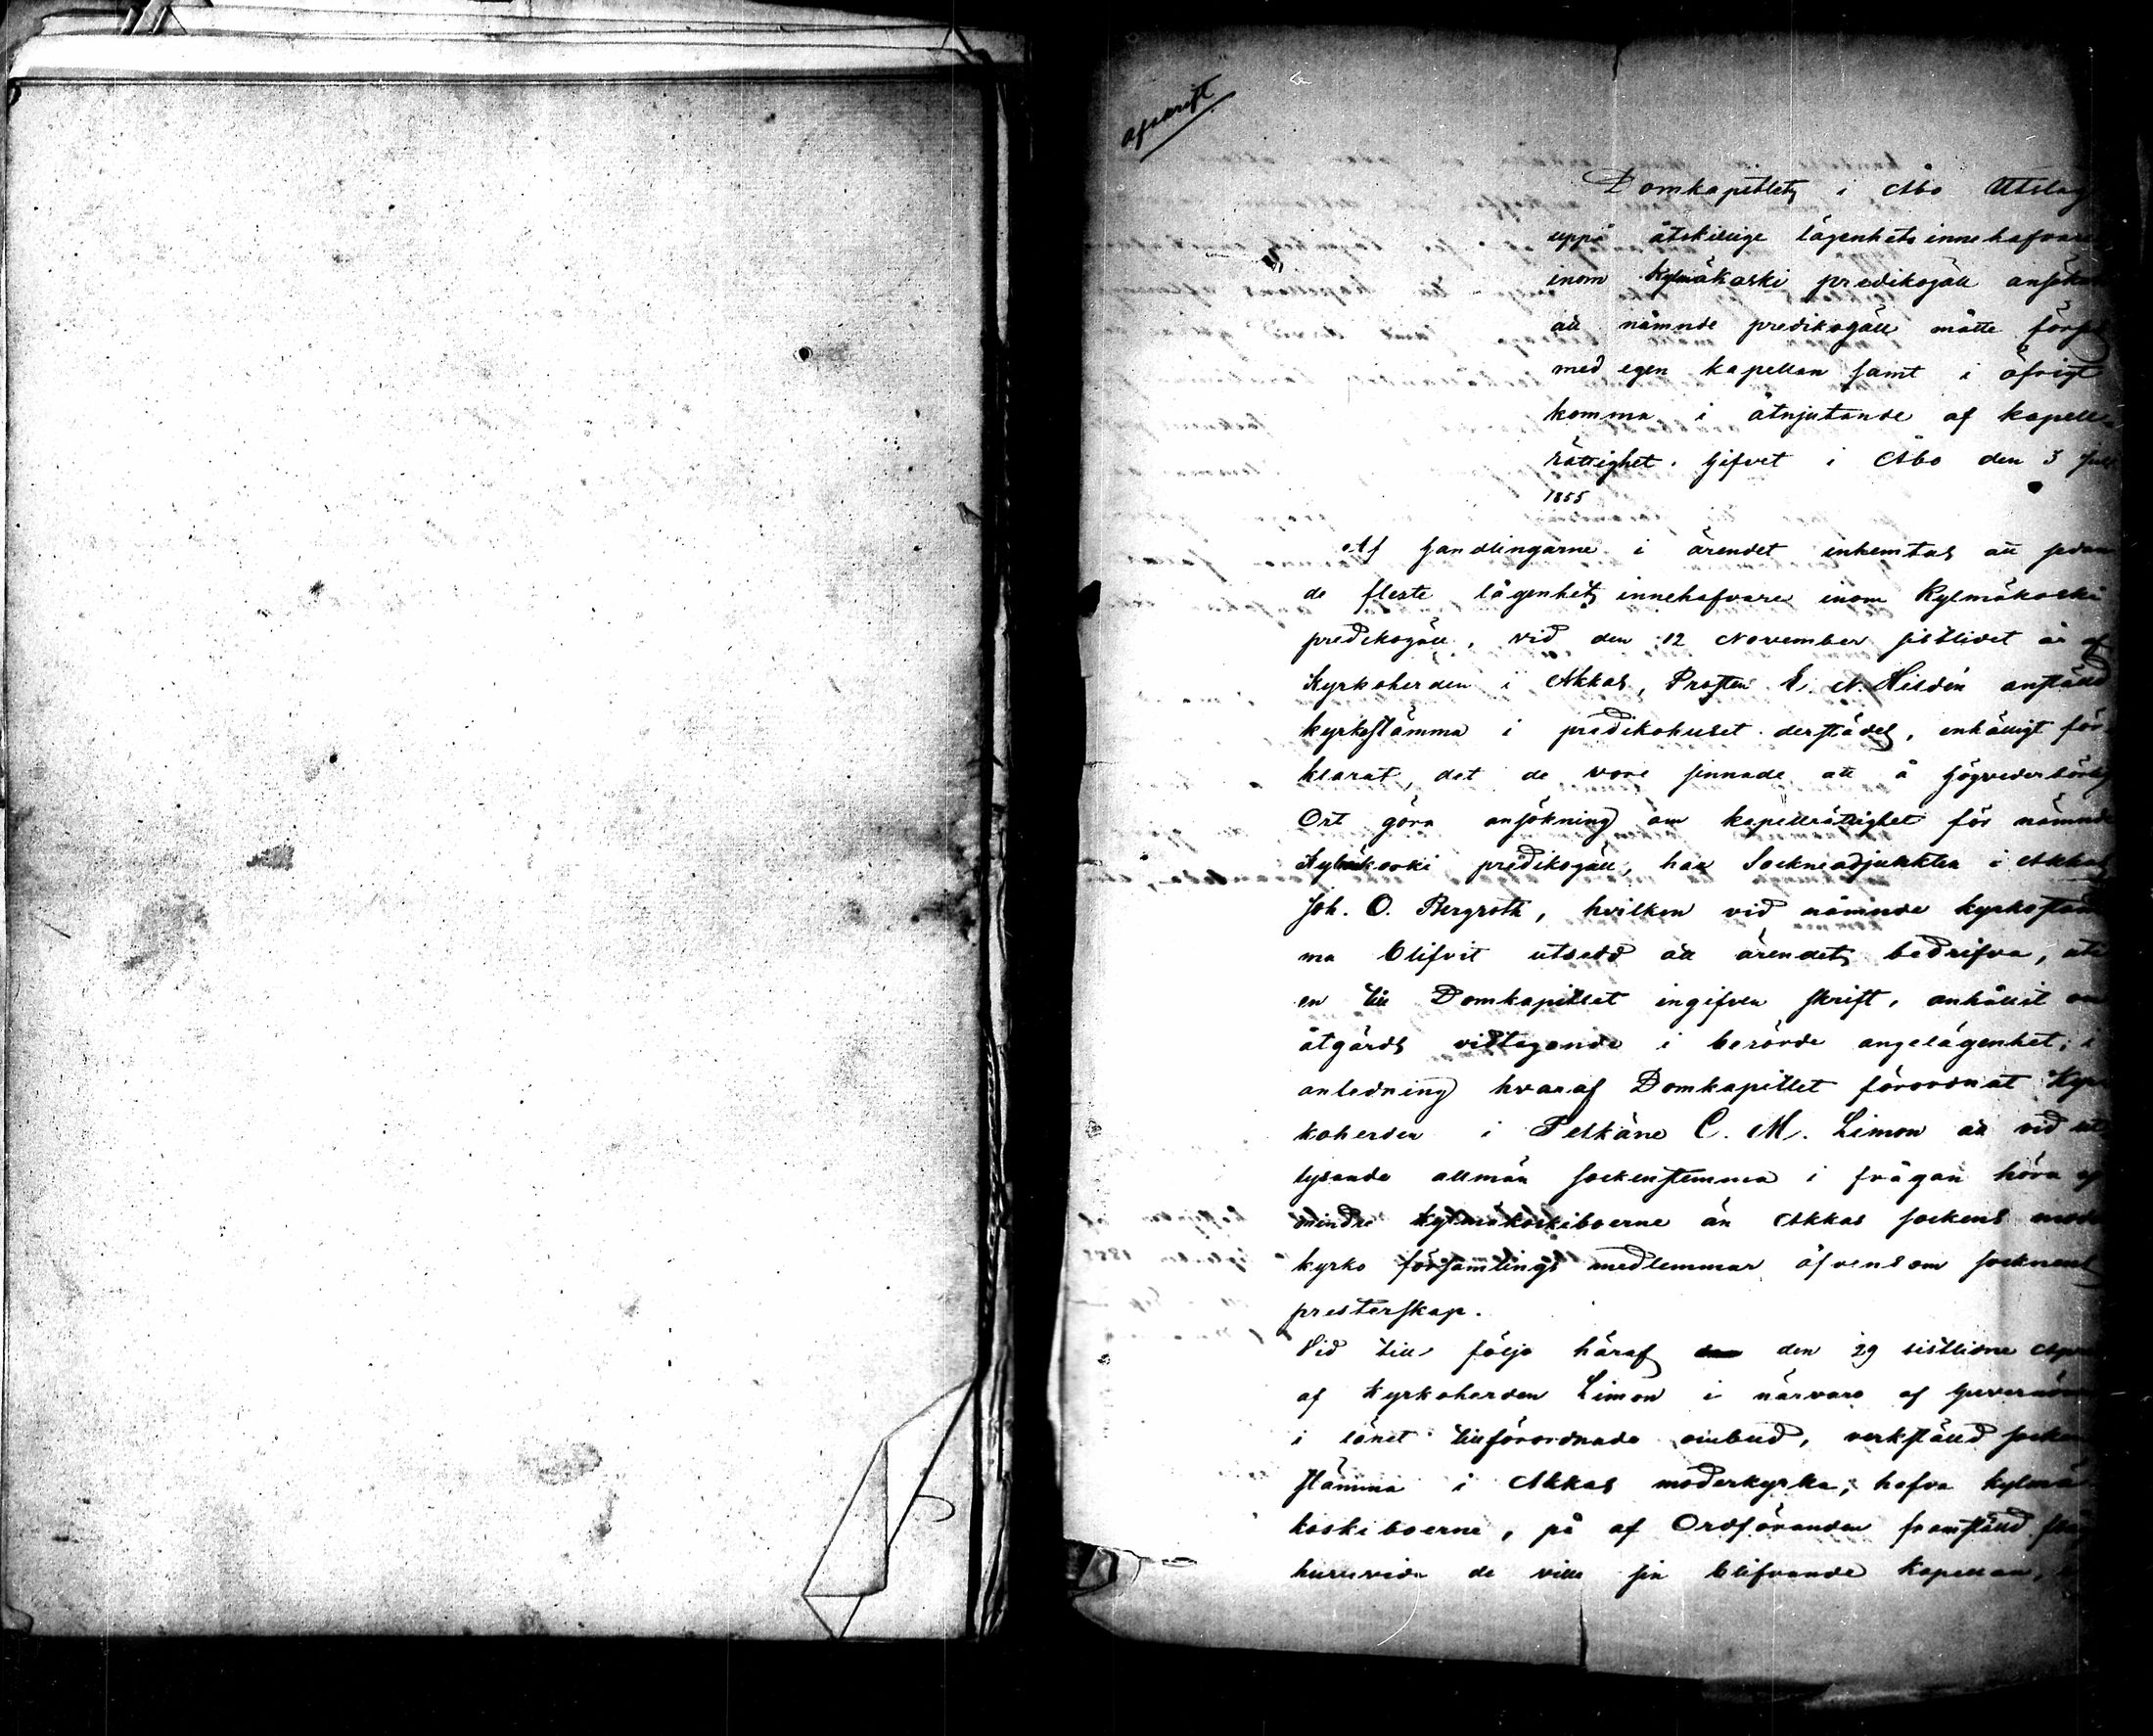 afskrift
Domkapitlets i Åbo Utslag
uppå åtskillige lägenhets innehafvares
inom Kylmäkoski predikogäll ansökan
att nämnde predikogäll måtte förses
med egen kapellan samt i öfrigt
komma i åtnjutande af kapell-
rättighet. Gifvet i Åbo den 3 Juli
1855
Af Handlingarne i ärendet inhemtas att sedan
de fleste lägenhets innehafvare inom Kylmäkoski
predikogäll, vid den 12 November sistlidet år af
Kyrkoherden i Akkas, Prosten E. N. Hildén anställd
kyrkostämma i predikohuset derstädes, enhälligt för-
klarat, det de vore sinnade att å Högvederbörlig
Ort göra ansökning om kapellrättighet för nämnde
Kylmäkoski predikogäll, har Sockneadjunkten i Akkas
Joh. O. Bergroth, hvilken vid nämnde kyrkostäm
ma blifvit utsedd att ärendet bedrifva, uti
en till Domkapitlet ingifven skrift, anhållit om
åtgärds vidtagande i berörde angelägenhet; i
anledning hvaraf Domkapitlet förordnat Kyr
koherden i Pelkäne C. M. Limon att vid ut
lysande allmän sockenstemma i frågan höra ej
mindre Kylmäkoskiboerne än Akkas sockens moder
kyrko församlings medlemmar äfvensom socknens
presterskap.
Vid till följe häraf den 29 sistlidne April
af Kyrkoherden Limon i närvaro af Guvernören
i länet tillförordnade ombud, verkställd socken
stämma i Akkas moderkyrka, hafva Kylmä-
koskiboerne, på af Ordföranden framställd fråg
huruvida de ville sin blifvande Kapellan,